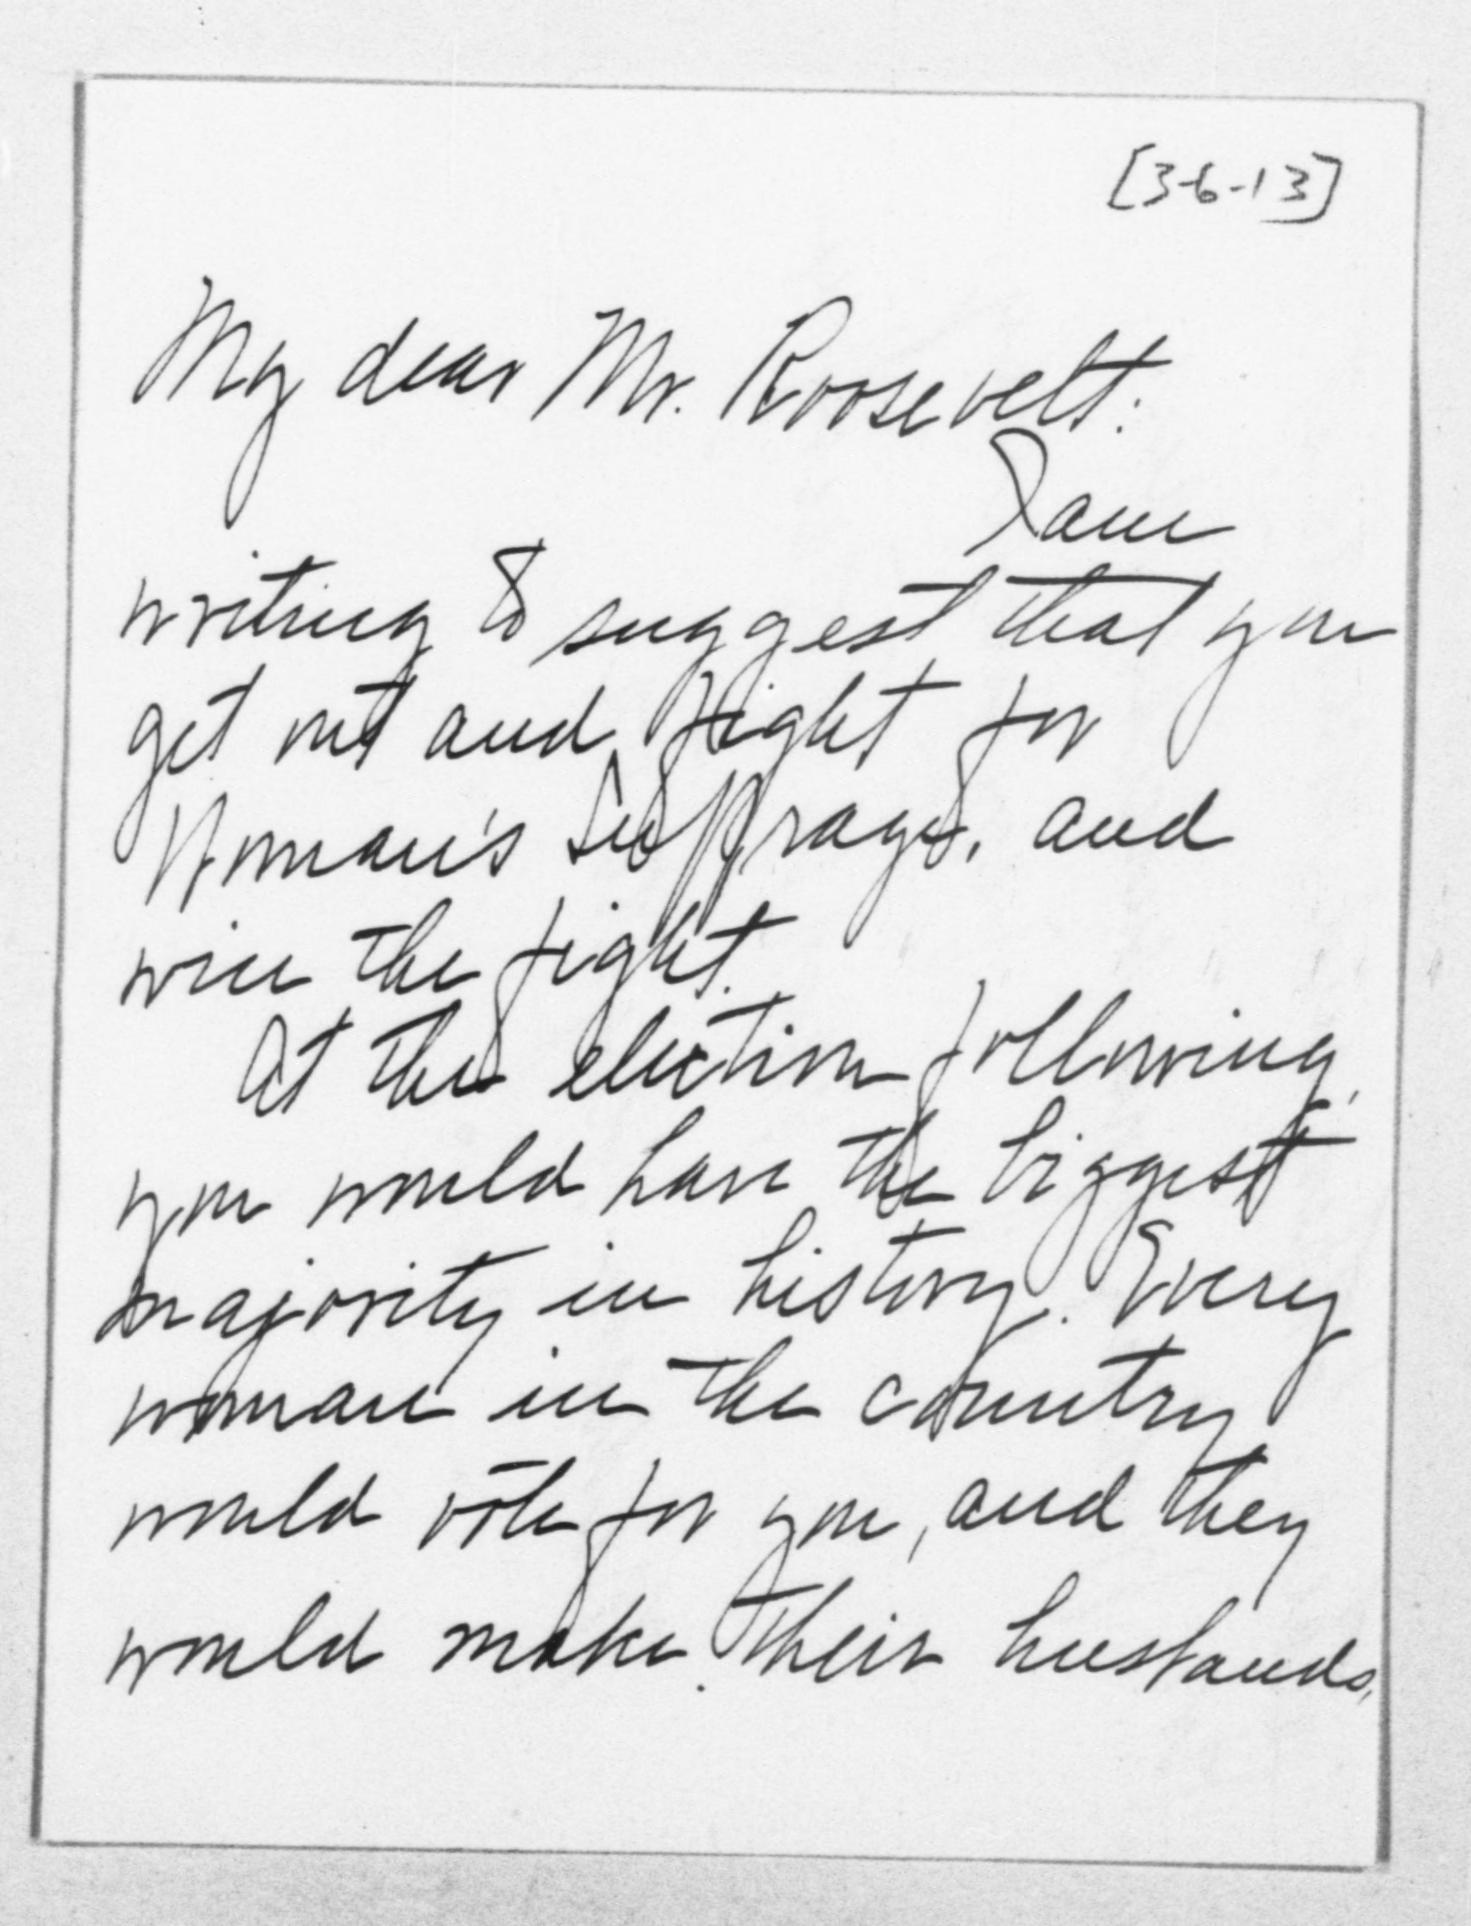 [3-6-13]
My dear Mr. Roosevelt:
I am
writing to suggest that you
get out and fight for
Woman's Suffrage, and
win the fight.
At the election following,
you would have the biggest
majority in history. Every
woman in the country
would vote for you, and they
would make their husbands,